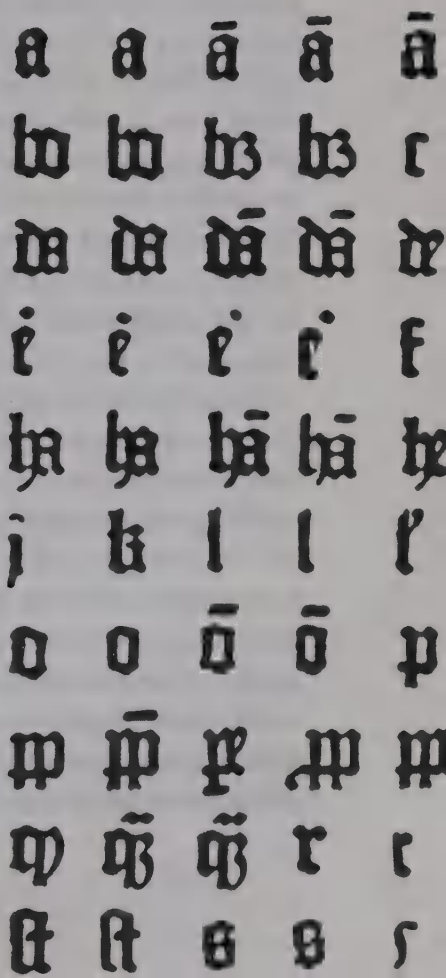 a a ā ā ā
bo bo bꝫ bꝫ c
da da dā dā de
ė ė e˙ e˙ f
ha ha hā hā he
j k l l
o o ō ō p
pp pp̄ pp
r r
ſt ſt s s ſ